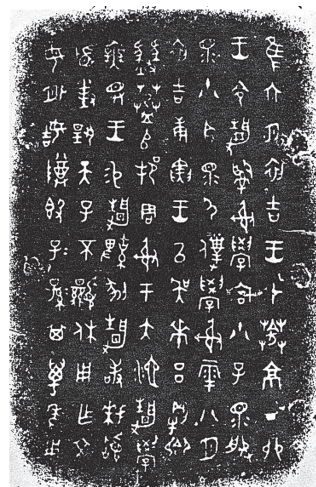 隹六月初吉王才𦯧京丁卯
王令靜𤔲射學宮小子眔服
眔小臣眔尸僕學射雩八月
初吉庚寅王以吳𠦪呂剛
𠂤邦周射于大池靜學
王易靜鞞剢靜敢拜𩒨
首對揚天子不顯休用乍文
母外姞尊𣪘子子孫孫其萬年用